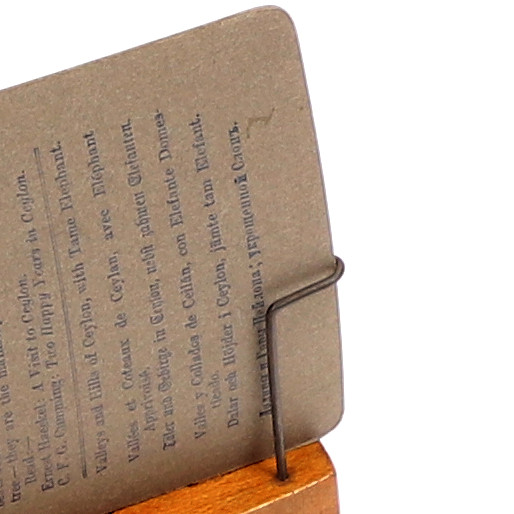 tree—they are the
Read—
Ernest Haeckel: A Visit to Ceylon.
C. F. G. Cumming: Two Happy Years in Ceylon.
Valleys and Hills of Ceylon, with Tame Elephant.
Vallées et Coteaux de Ceylan, avec Eléphant
Apprivoisé.
Täler und Gebirge in Ceylon, nebst zahmen Elefanten.
Valles y Collados de Ceilán, con Elefante Domes-
ticado.
Dalar och Höjder i Ceylon, jämte tam Elefant.
Долины и Горы Цейлона; укрощенный Слонъ.